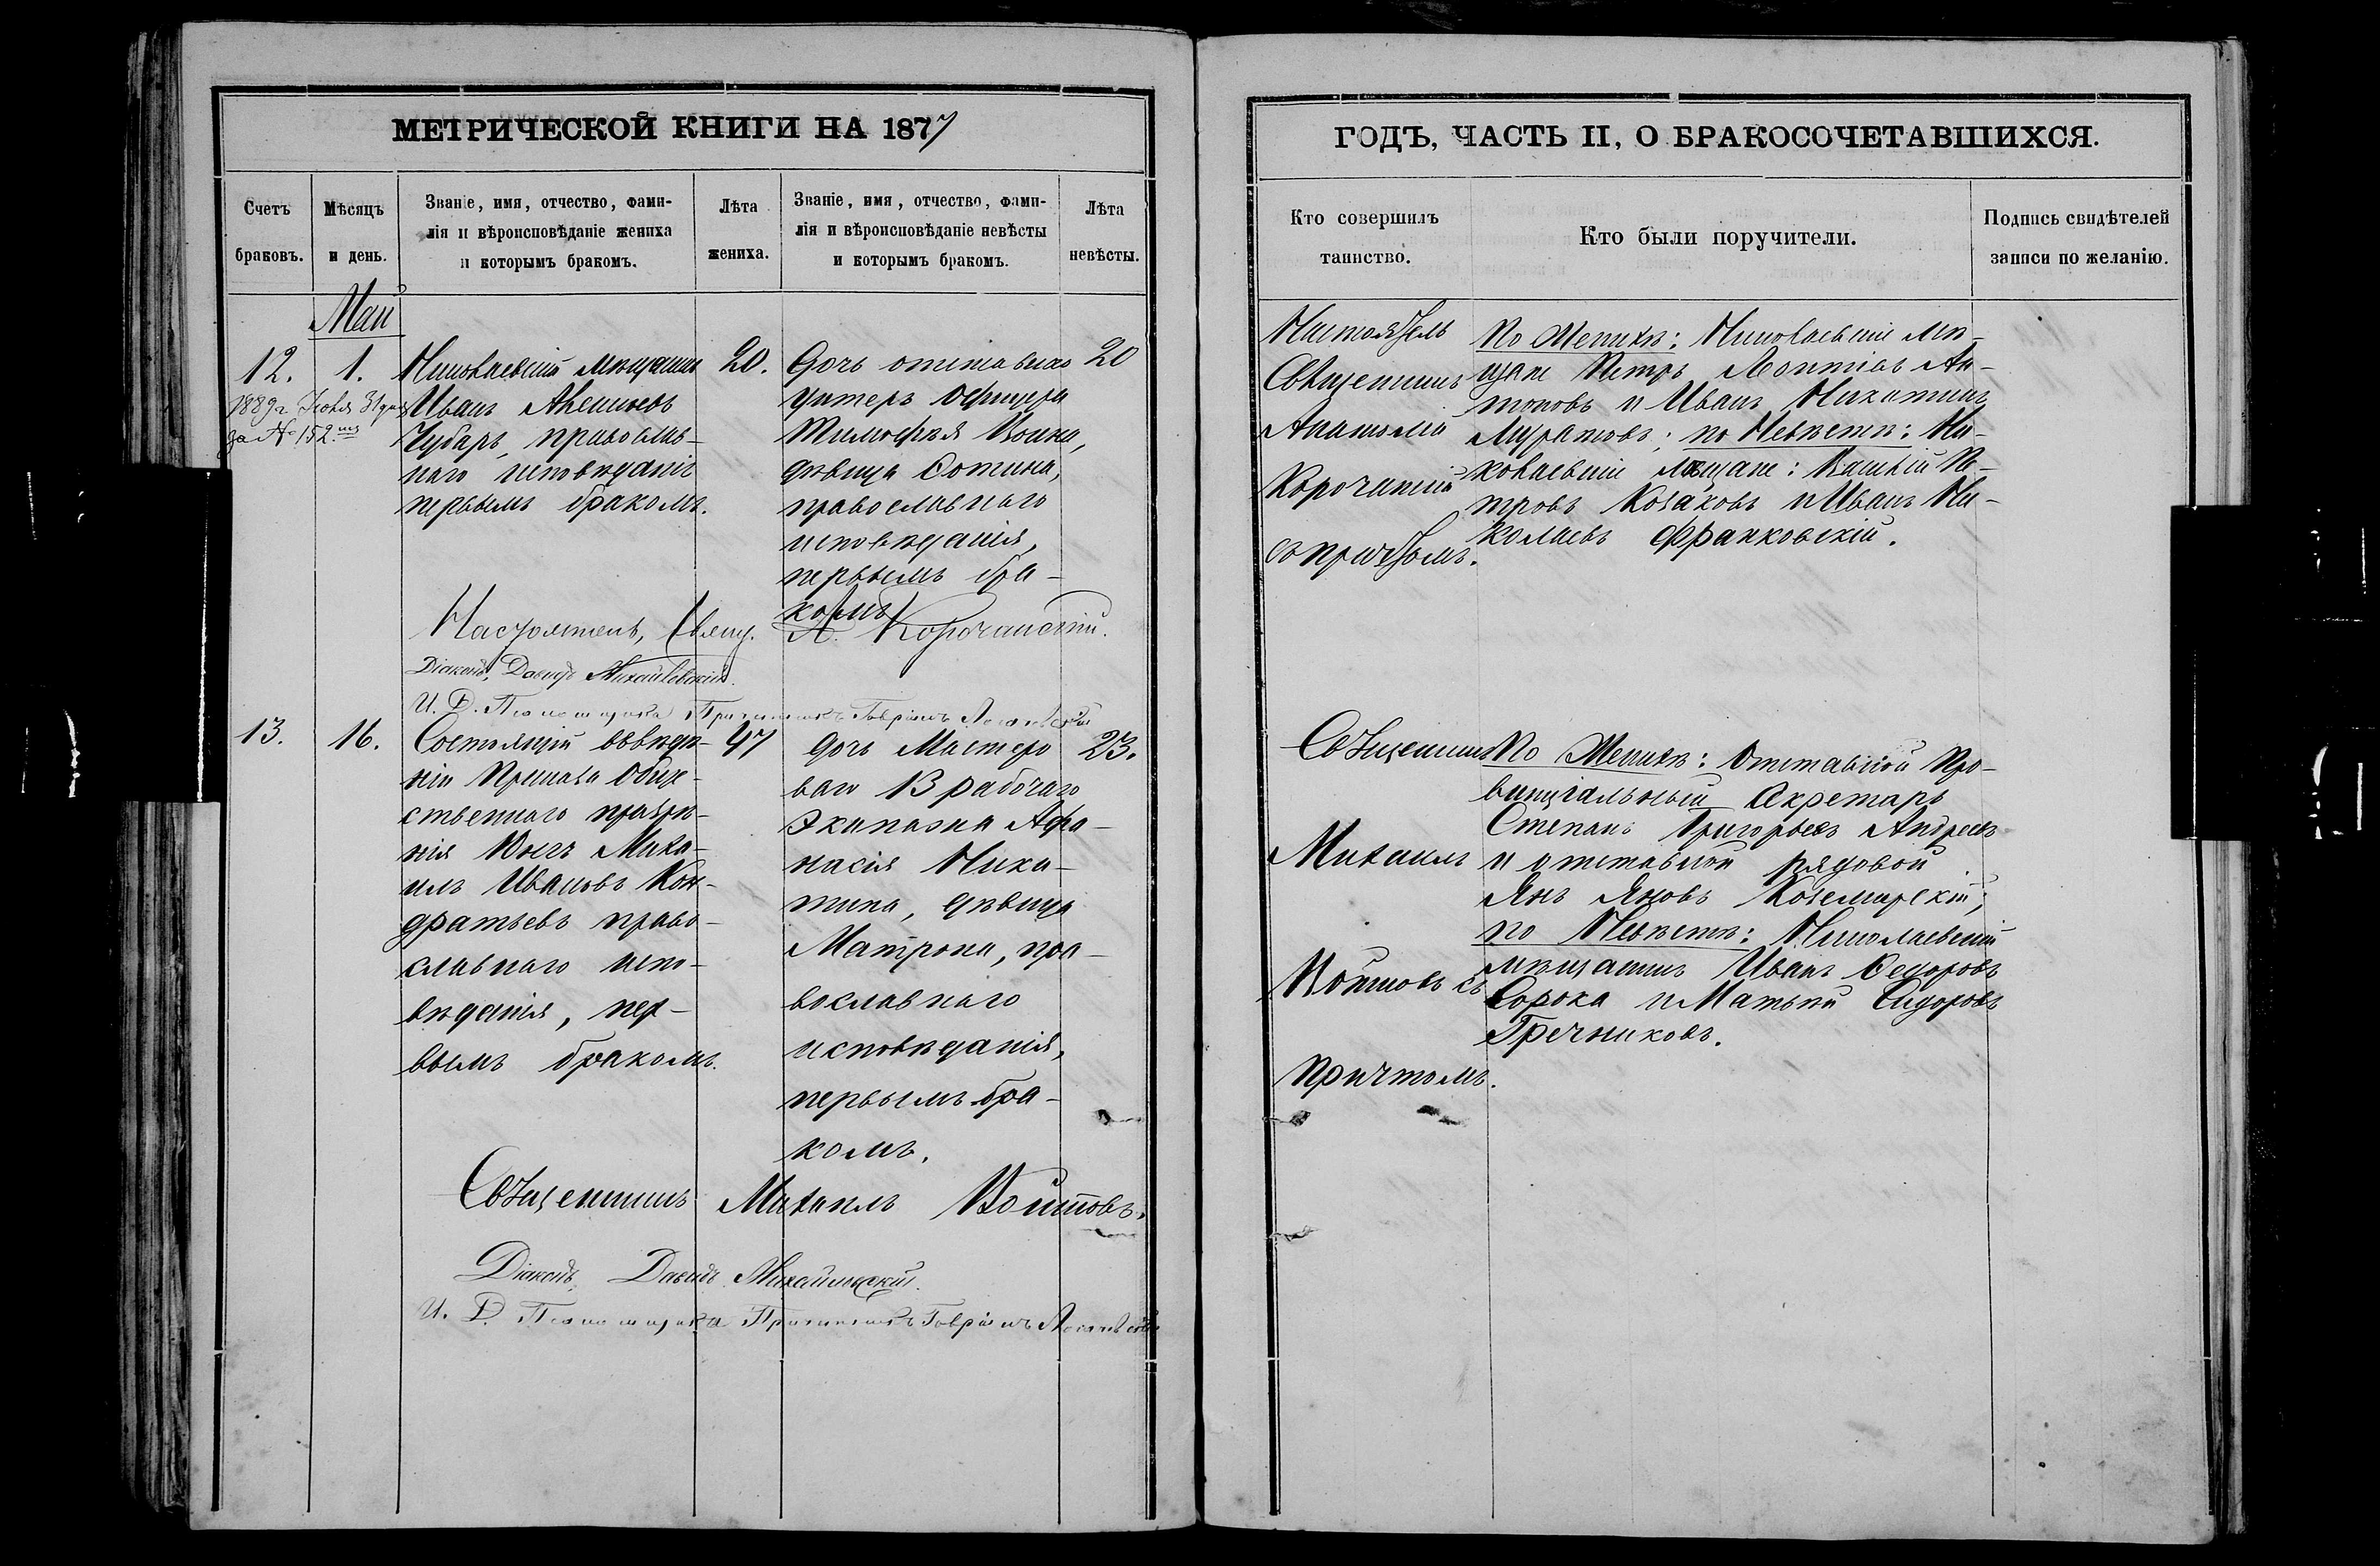 МЕТРИЧЕСКОЙ КНИГИ НА 1877
Счетъ браковъ.
Мѣсяцъ и день.
Званіе, имя, отчество, фами-
лія и вѣроисповѣданіе жениха
и которымъ бракомъ.
Лѣта жениха.
Званіе, имя, отчество, фами-
лія и вѣроисповѣданіе невѣсты
и которымъ бракомъ.
Лѣта невѣсты.
Май
12.
1.
1889 г. 31
за № 152
Николаевскій мѣщанинъ
Иванъ
Чубарь, православ-
наго исповѣданія
первымъ бракомъ.
20.
Дочь отставнаго
унтеръ офицера
Тимофѣя
дѣвица
православнаго
исповѣданія,
первымъ бра-
комъ
20
Настоятель, Свящ. А. Корочанскій.
Діаконъ, Давидъ Михайлевскій.
И. Д. Псаломщика Причетникъ Гавріилъ
13.
16.
Состоящій въ вѣдѣ-
ніи Приказа Обще-
ственнаго призрѣ-
нія Миха-
илъ Ивановъ Кон-
дратьевъ право-
славнаго испо-
вѣданія, пер-
вымъ бракомъ.
47
Дочь Мастеро
ваго 13 рабочаго
Экипажа Афа-
насія Ники-
тина, дѣвица
Матрона, пра-
вославнаго
исповѣданія,
первымъ бра-
комъ.
23.
Священникъ Михаилъ Войтовъ.
Діаконъ Давидъ Михайлевскій.
И. Д. Псаломщика Причетникъ Гавріилъ
ГОДЪ, ЧАСТЬ II, О БРАКОСОЧЕТАВШИХСЯ.
Кто совершилъ таинство.
Кто были поручители.
Подпись свидѣтелей записи по желанію.
Настоятель
Священникъ
Анатолій
Корочанскій
съ причтомъ.
По Женихѣ: Николаевскіе мѣ-
щане Петръ Леонтіевъ Ан-
тоновъ и Иванъ Никитинъ
Муратовъ; по Невѣстѣ: Ни-
колаевскіе мѣщане: Василій Пе-
тровъ Козаковъ и Иванъ Ни-
колаевъ Франковскій.
Священникъ
Михаилъ
Войтовъ съ
причтомъ.
По Женихѣ: Отставной Про-
винціальный Секретарь
Степанъ Григорьевъ Андреевъ
и отставной рядовой
Янъ Яновъ
по Невѣстѣ: Николаевскій
мѣщанинъ Иванъ Федоровъ
Сорока и Матвѣй Сидоровъ
Гречниковъ.